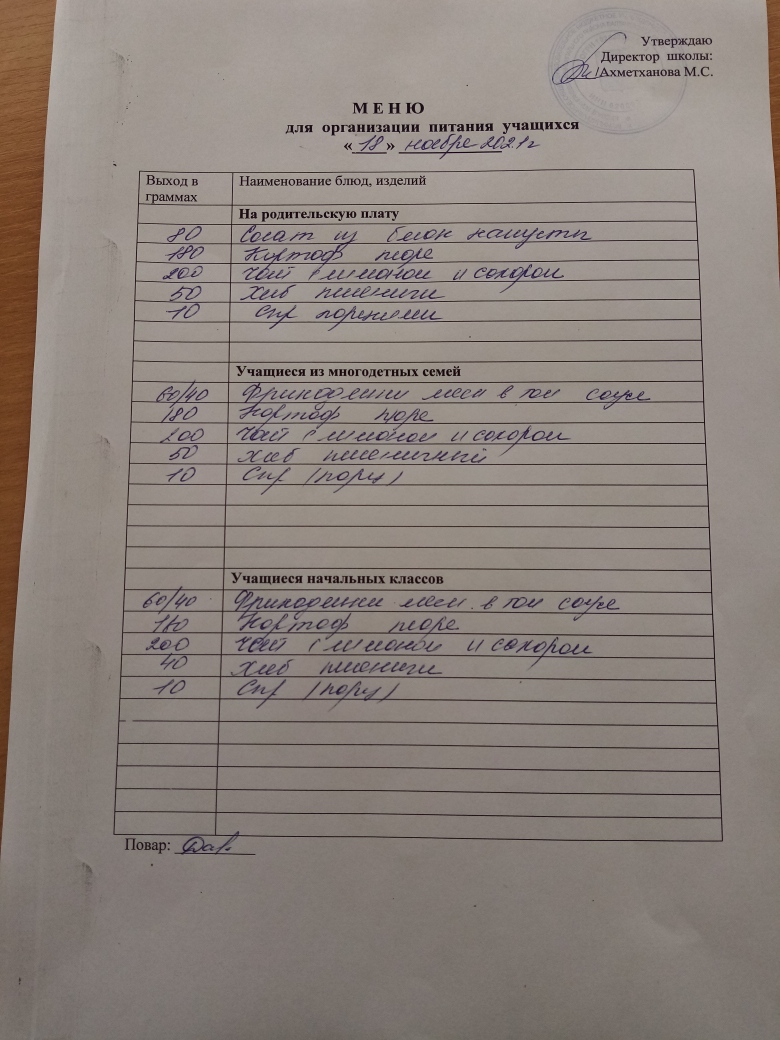 Утверждаю
Директор школы:
/Ахметханова М.С.
МЕНЮ
для организации питания учащихся
«18» ноября 2021г
Выход в граммах Наименование блюд, изделий
На родительскую плату
80 Салат из белок капусты
180 Картоф пюре
200 Чай с лимоном и сахаром
50 Хлеб
10 Сыр
Учащиеся из многодетных семей
60/40 Фрикадельки мясн в том соусе
180 Картоф пюре
200 Чай с лимоном и сахаром
50 Хлеб пшеничный
10 Сыр (порц)
Учащиеся начальных классов
60/40 Фрикадельки мясн. в том соусе
180 Картоф пюре
200 Чай с лимоном и сахаром
40 Хлеб
10 Сыр (порц)
Повар: